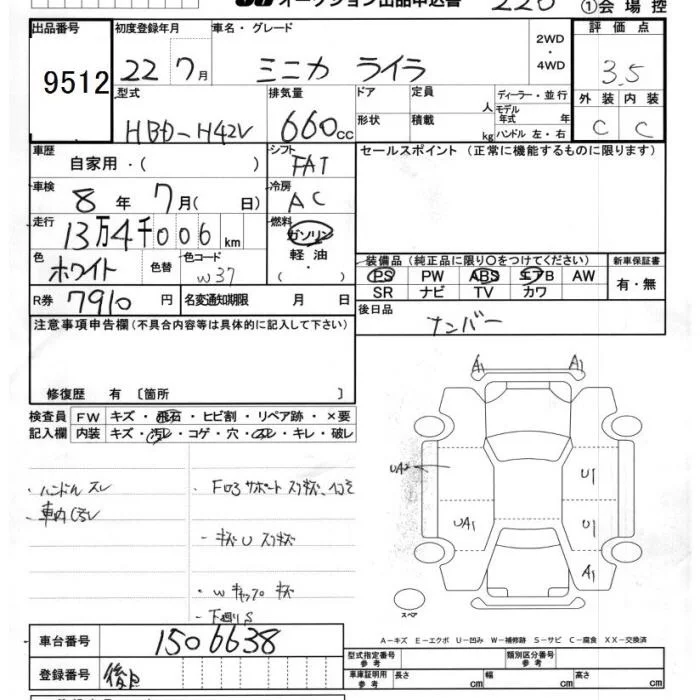 オークション出品申込書
①会場控
出品番号 初度登録年月 車名・グレード 2WD・4WD 評価点
9512 22 7月 ミニカ ライラ 3.5
型式 排気量 ドア 定員 人 ディーラー・並行 外装 内装
HBD-H42V 660cc 形状 積載 kg モデル年式 年 ハンドル 左・右 C C
車歴 自家用・( ) シフト FAT セールスポイント (正常に機能するものに限ります)
車検 8年 7月( 日) 冷房 AC
走行 13万4千006km 燃料 ガソリン 軽油 ( ・ )
色 ホワイト 色替 色コード W37 装備品(純正品に限り○をつけてください) 新車保証書
PS PW ABS エアB AW 有・無
SR ナビ TV カワ
R券 7910円 名変通知期限 月 日 後日品 ナンバー
注意事項申告欄(不具合内容等は具体的に記入して下さい)
修復歴 有 〔箇所 〕
検査員 FW キズ・飛石・ヒビ割・リペア跡・×要
記入欄 内装 キズ・汚レ・コゲ・穴・スレ・キレ・破レ
A1 A1
UA2 U1
UA1 U1
A1
スペア
・ハンドル スレ
・車内 汚レ
・キズU スリキズ
・Wキャップ キズ
・下廻りS
A-キズ E-エクボ U-凹み W-補修跡 S-サビ C-腐食 XX-交換済
車台番号 1506638 型式指定番号 参考 類別区分番号 参考
登録番号 後日 車庫証明用 参考 長さ cm 幅 cm 高さ cm